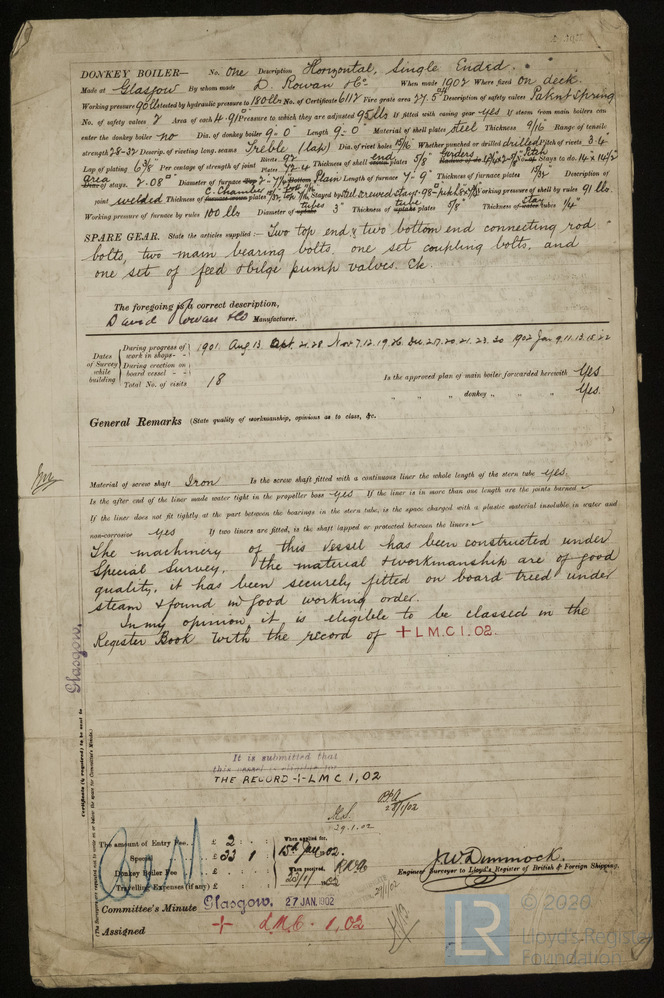 DONKEY BOILER— No. One Description Horizontal, Single Ended.
Made at Glasgow By whom made D. Rowan & Co. When made 1902 Where fixed on deck.
Working pressure 90 lbs tested by hydraulic pressure to 180 lbs No. of Certificate 6112 Fire grate area 27.5 Description of safety valves Patent Spring
No. of safety valves 2 Area of each 4.91 Pressure to which they are adjusted 95 lbs If fitted with easing gear yes If steam from main boilers can
enter the donkey boiler no Dia. of donkey boiler 9-0" Length 9-0" Material of shell plates Steel Thickness 9/16 Range of tensile
strength 28-32 Descrip. of riveting long. seams Treble (lap) Dia. of rivet holes 15/16 Whether punched or drilled drilled Pitch of rivets 3.4
Lap of plating 6 3/8 Per centage of strength of joint Rivets 92 Plates 72.4 Thickness of shell end plates 5/8" girders Stays to do. 14 x 14 1/2"
Area of stays. 2.08 Diameter of furnace Plain Length of furnace 7-9" Thickness of furnace plates 15/32 Description of
joint welded Thickness of C. Chamber plates Stayed by Steel screwed stays Working pressure of shell by rules 91 lbs.
Working pressure of furnace by rules 100 lbs Diameter of tubes 3" Thickness of tube plates 5/8" Thickness of Stay tubes 1/4"
SPARE GEAR. State the articles supplied:— Two top end & two bottom end connecting rod
bolts, two main bearing bolts, one set coupling bolts, and
one set of feed & bilge pump valves. &c.
The foregoing is a correct description,
David Rowan & Co Manufacturer.
Dates of Survey while building
During progress of work in shops- - 1901. Aug 13. Sept. 21.28 Nov 7.12.19.26 Dec. 2.17.20.21.23.30 1902 Jan 9.11.13.15.22
During erection on board vessel - -
Total No. of visits 18
Is the approved plan of main boiler forwarded herewith Yes
" " " donkey " " Yes.
General Remarks (State quality of workmanship, opinions as to class, &c.
Material of screw shaft Iron Is the screw shaft fitted with a continuous liner the whole length of the stern tube yes.
Is the after end of the liner made water tight in the propeller boss yes If the liner is in more than one length are the joints burned
If the liner does not fit tightly at the part between the bearings in the stern tube, is the space charged with a plastic material insoluble in water and
non-corrosive yes If two liners are fitted, is the shaft lapped or protected between the liners
The machinery of this Vessel has been constructed under
Special Survey, the material & workmanship are of good
quality, it has been securely fitted on board tried under
steam & found in good working order.
In my opinion it is eligible to be classed in the
Register Book with the record of + L.M.C 1.02.
Glasgow.
It is submitted that
this vessel is eligible for
THE RECORD + LMC 1,02
29.1.02
28/1/02
The amount of Entry Fee.. £ 2 : :
Special .. £ 33 : 1 :
Donkey Boiler Fee .. £ : :
Travelling Expenses (if any) £ : :
When applied for,
15th Jan 02.
When received,
J.W. Dimmock.
Engineer Surveyor to Lloyd's Register of British & Foreign Shipping.
Committee's Minute Glasgow. 27 JAN. 1902
Assigned + L.M.C. 1.02
LR
© 2020
Lloyd's Register
Foundation